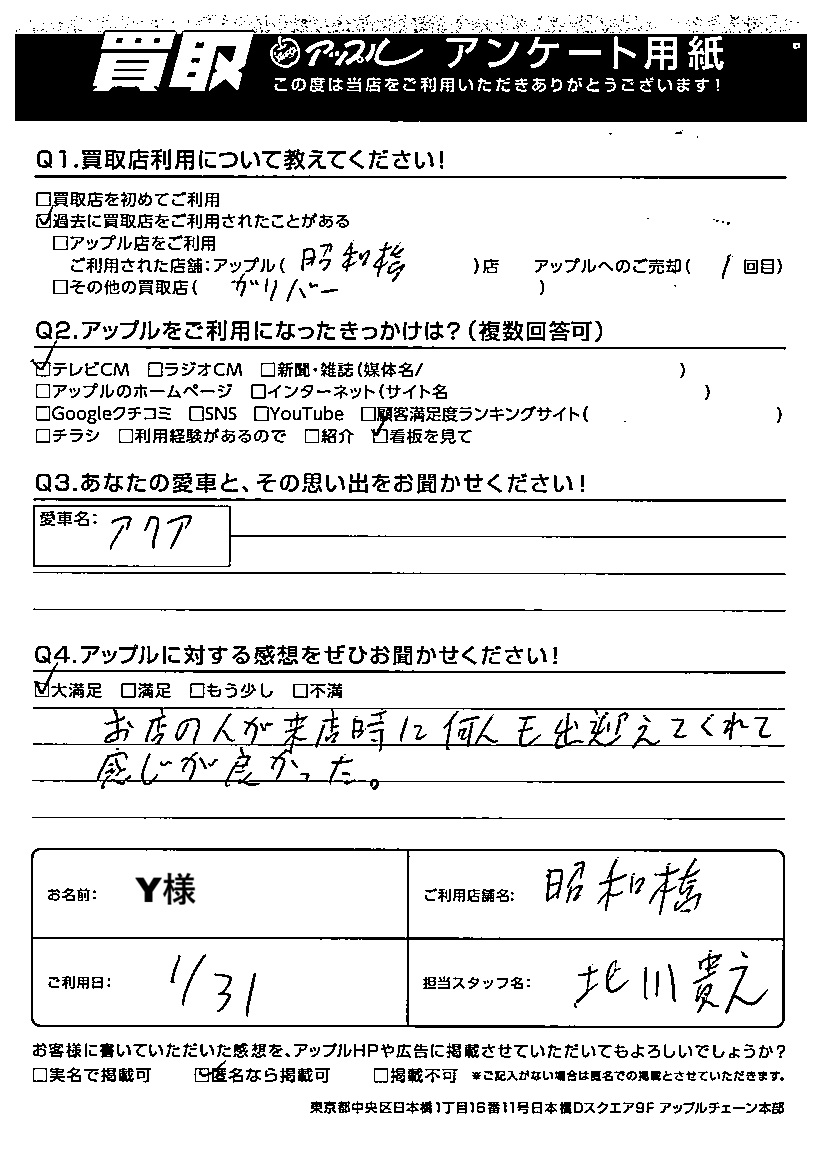 買取 アップル アンケート用紙
この度は当店をご利用いただきありがとうございます!
Q1.買取店利用について教えてください!
□買取店を初めてご利用
☑過去に買取店をご利用されたことがある
□アップル店をご利用
ご利用された店舗:アップル( 昭和橋 )店 アップルへのご売却( 1 回目)
□その他の買取店( ガリバー )
Q2.アップルをご利用になったきっかけは?(複数回答可)
☑テレビCM □ラジオCM □新聞・雑誌(媒体名/ )
□アップルのホームページ □インターネット(サイト名 )
□Googleクチコミ □SNS □YouTube □顧客満足度ランキングサイト( )
□チラシ □利用経験があるので □紹介 ☑看板を見て
Q3.あなたの愛車と、その思い出をお聞かせください!
愛車名: アクア
Q4.アップルに対する感想をぜひお聞かせください!
☑大満足 □満足 □もう少し □不満
お店の人が来店時に何人も出迎えてくれて
感じが良かった。
お名前: Y様 ご利用店舗名: 昭和橋
ご利用日: 1/31 担当スタッフ名: 北川貴之
お客様に書いていただいた感想を、アップルHPや広告に掲載させていただいてもよろしいでしょうか?
□実名で掲載可 ☑匿名なら掲載可 □掲載不可 ※ご記入がない場合は匿名での掲載とさせていただきます。
東京都中央区日本橋1丁目16番11号日本橋Dスクエア9F アップルチェーン本部